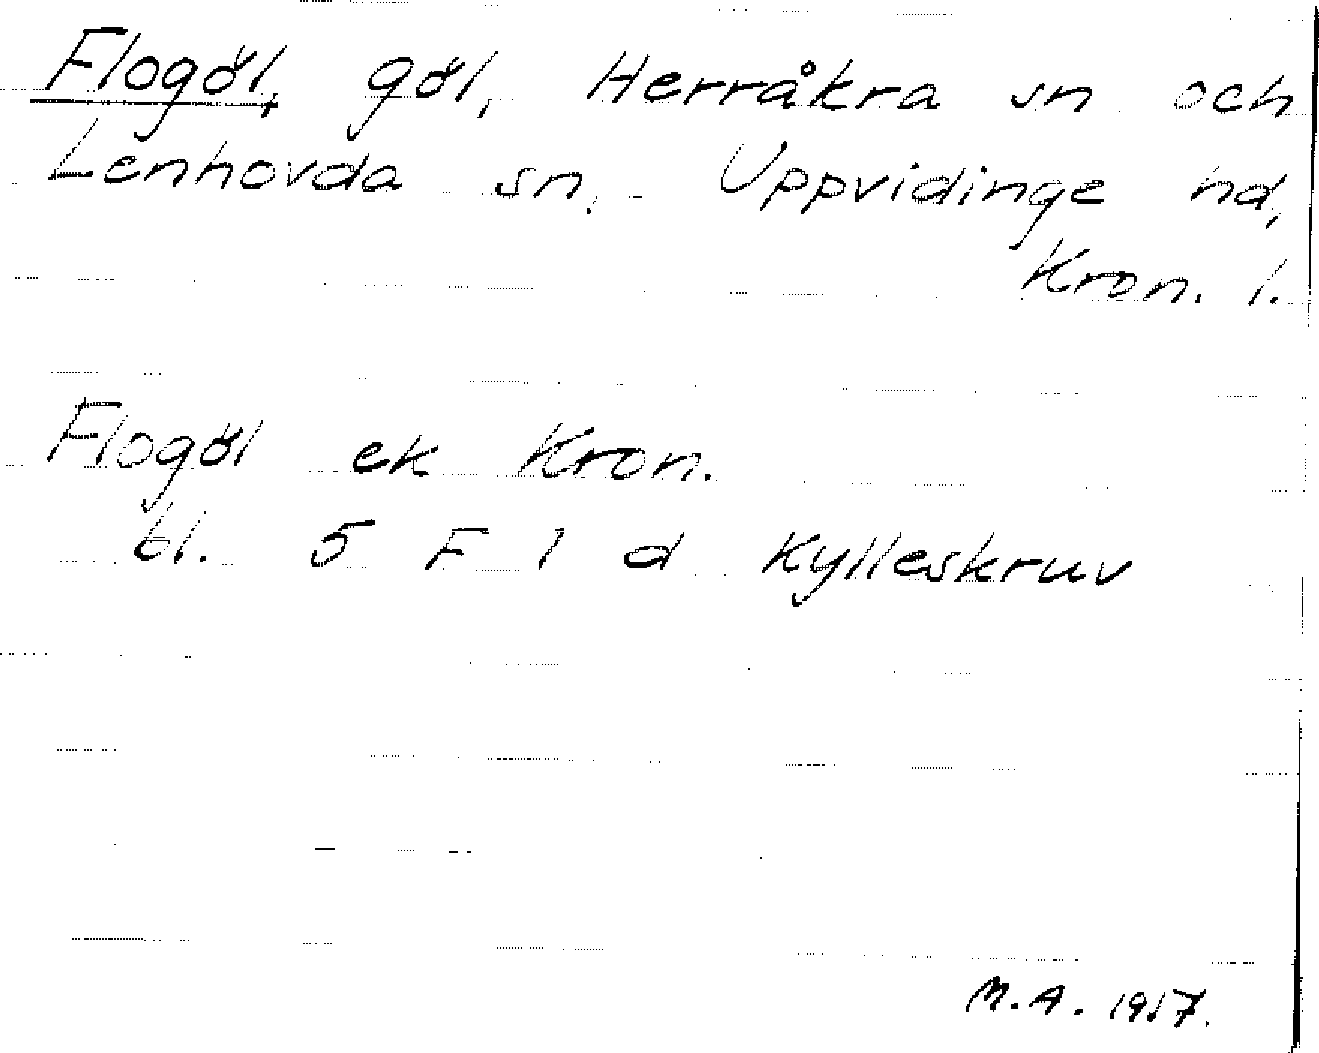 Flogöl, göl, Herråkra sn och
Lenhovda sn, Uppvidinge hd,
Kron. l.
Flogöl ek Kron.
bl. 5 F 1 d Kylleskruv
M.A. 1957.